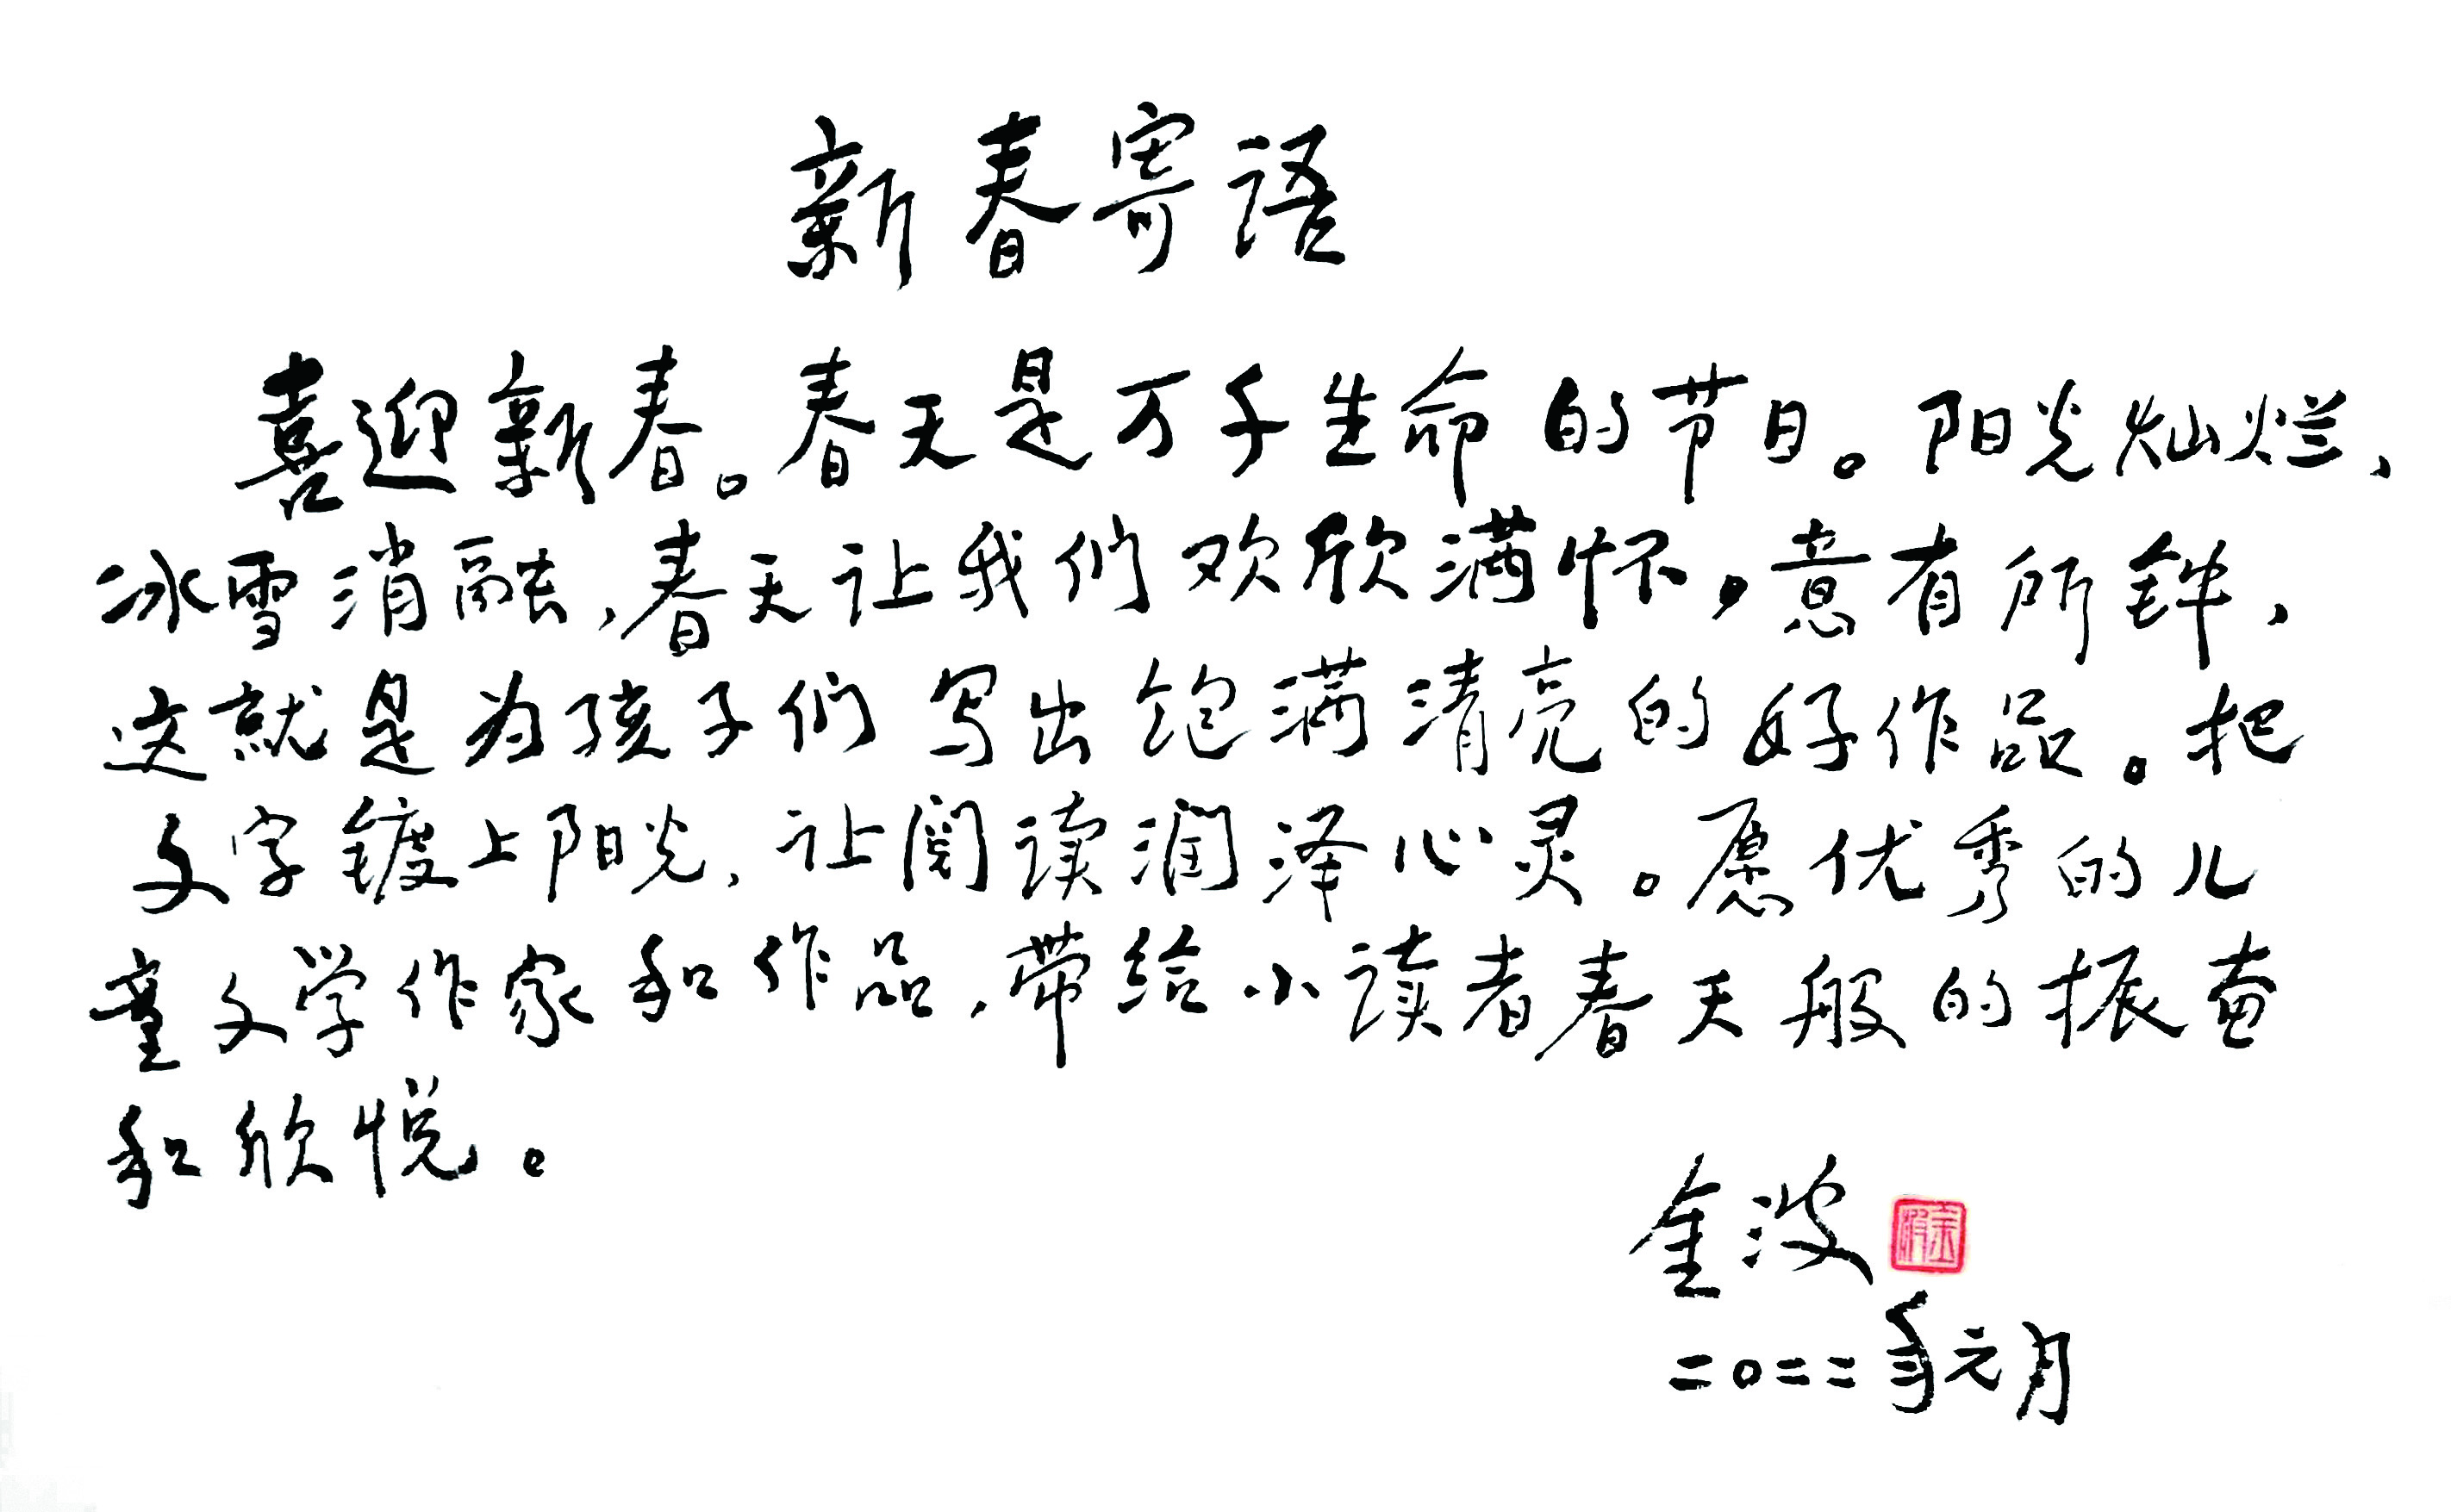 新春寄语
喜迎新春。春天是万千生命的节日。阳光灿烂、
冰雪消融,春天让我们欢欣满怀,意有所钟、
这就是为孩子们写出饱满清亮的好作品。把
文字镀上阳光,让阅读润泽心灵。愿优秀的儿
童文学作家和作品,带给小读者春天般的振奋
和欣悦。
金波
二〇二二年元月